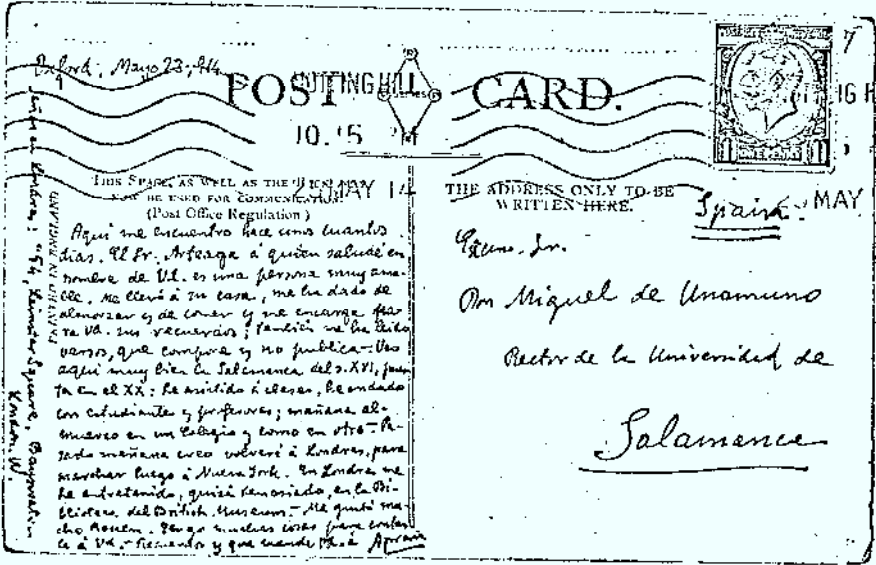 Oxford, Mayo 23, 914
POST CARD.
NOTTING HILL
10.15 PM
MAY 14
MAY
THIS SPACE, AS WELL AS THE BACK, MAY
NOW BE USED FOR COMMUNICATION.
(Post Office Regulation)
PRINTED IN ENGLAND
THE ADDRESS ONLY TO BE
WRITTEN HERE.
Aquí me encuentro hace unos cuantos
días. El Sr. Arteaga á quien saludé en
nombre de Vd. es una persona muy ama-
ble. Me llevó á su casa, me ha dado de
almorzar y de comer y me encarga pa-
ra Vd. sus recuerdos; también me ha leído
versos, que compone y no publica. - Veo
aquí muy bien la Salamanca del s. XVI, pues-
ta en el XX: he asistido á clases, he andado
con estudiantes y profesores; mañana al-
muerzo en un Colegio y como en otro. - Pa-
sado mañana creo volveré á Londres, para
marchar luego á Nueva York. En Londres me
he entretenido, quizá demasiado, en la Bi-
blioteca del British Museum. - Me gustó mu-
cho. Tengo muchas cosas para contar-
le á Vd. - Recuerdos y que mande Vd. á
en Londres: "54, Leinster Square, Bayswater
London. W.
Spain.
Excmo. Sr.
Don Miguel de Unamuno
Rector de la Universidad de
Salamanca